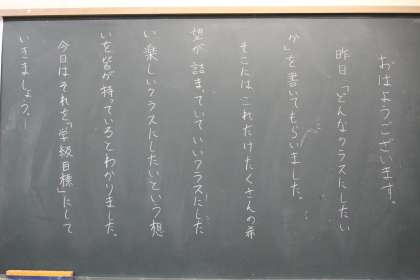 おはようございます。
昨日、「どんなクラスにしたい
か」を書いてもらいました。
そこには、これだけたくさんの希
望が詰まっていていいクラスにした
い、楽しいクラスにしたいという想
いを皆が持っているとわかりました。
今日はそれを「学級目標」にして
いきましょう！